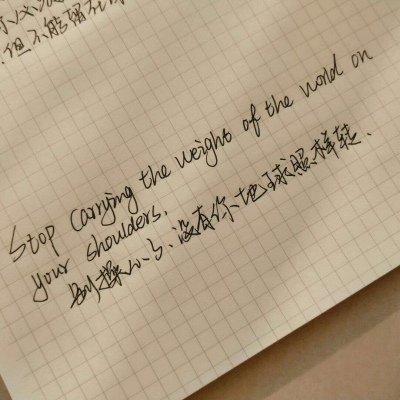 但不能留在
Stop carrying the weight of the world on
your shoulders.
别操心了、没有你地球照样转、